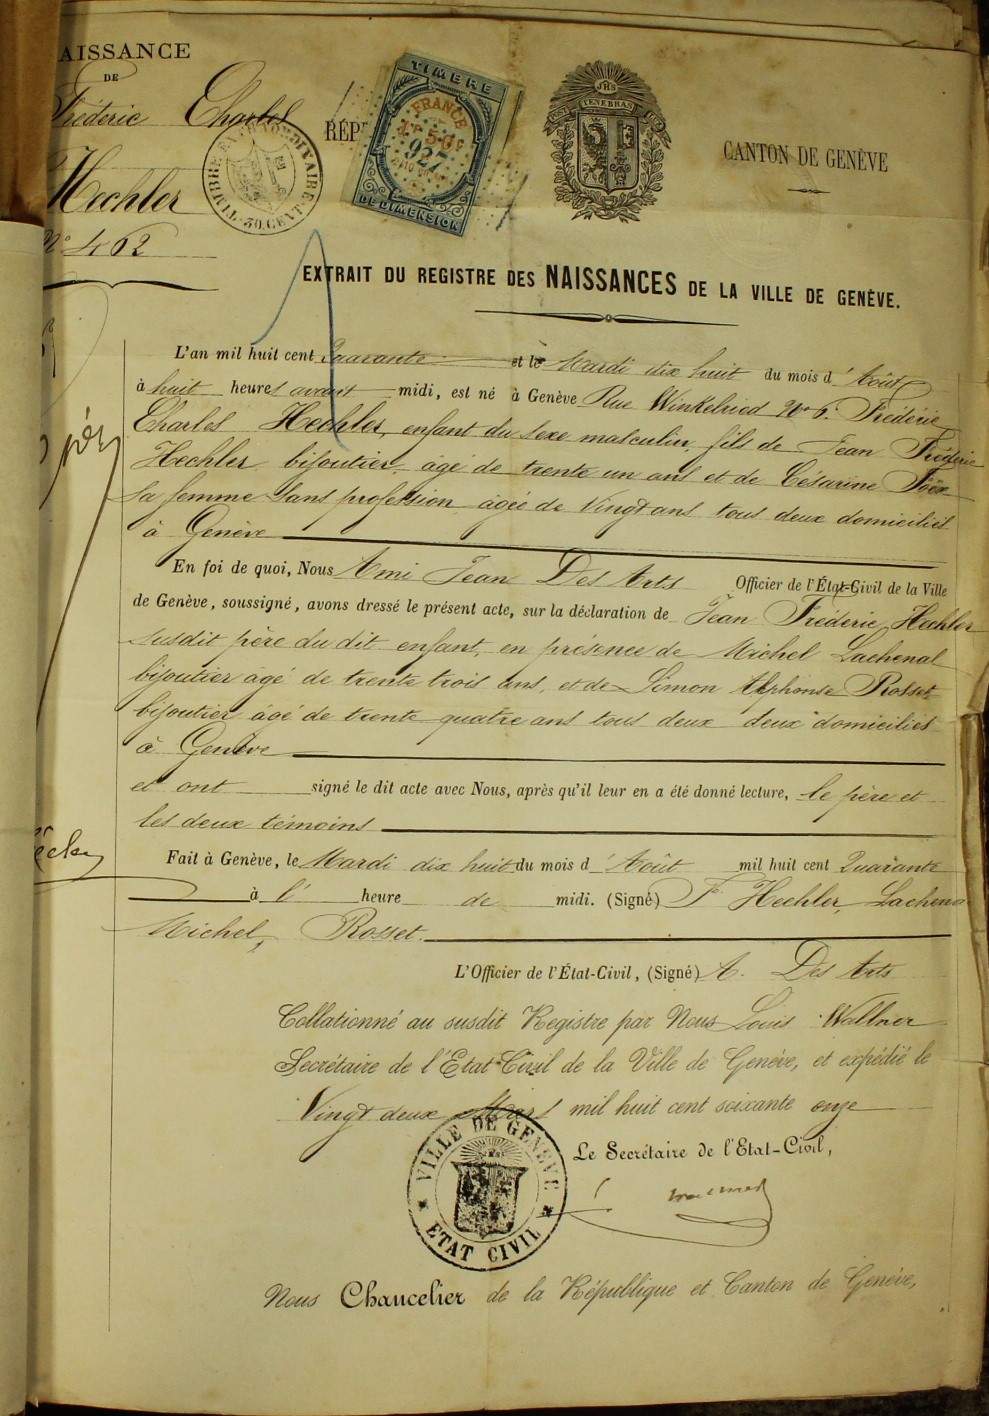 AISSANCE
DE
Fréderic Charles
Hechler
N° 462
TIMBRE EXTRAORDINAIRE
30. CENT.
RÉP
TIMBRE
FRANCE
50c
927
DE DIMENSION
JHS
TENEBRAS
CANTON DE GENÈVE
EXTRAIT DU REGISTRE DES NAISSANCES DE LA VILLE DE GENÈVE.
L'an mil huit cent Quarante et le Mardi dix huit du mois d' Août
à huit heures avant midi, est né à Genève Rue Winkelried No 6. Fréderic
Charles Hechler, enfant du sexe masculin, fils de Jean Fréderic
Hechler bijoutier, âgé de trente un ans et de Césarine Foëx
sa femme sans profession âgée de Vingt ans tous deux domiciliés
à Genève
En foi de quoi, Nous Ami Jean Des Arts Officier de l'État-Civil de la Ville
de Genève, soussigné, avons dressé le présent acte, sur la déclaration de Jean Fréderic Hechler
susdit père du dit enfant, en présence de Michel Lachenal
bijoutier âgé de trente trois ans, et de Simon Alphonse Rosset
bijoutier âgé de trente quatre ans tous deux deux domiciliés
à Genève
et ont signé le dit acte avec Nous, après qu'il leur en a été donné lecture, le père et
les deux témoins
Fait à Genève, le Mardi dix huit du mois d' Août mil huit cent Quarante
à l' heure de midi. (Signé) F. Hechler, Lachenal
Michel, Rosset.
L'Officier de l'État-Civil, (Signé) A. Des Arts
Collationné au susdit Registre par Nous Louis Wallner
Secrétaire de l'Etat-Civil de la Ville de Genève, et expédié le
Vingt deux Mars mil huit cent soixante onze
VILLE DE GENÈVE
ETAT CIVIL
Le Secrétaire de l'Etat-Civil,
Nous Chancelier de la République et Canton de Genève,